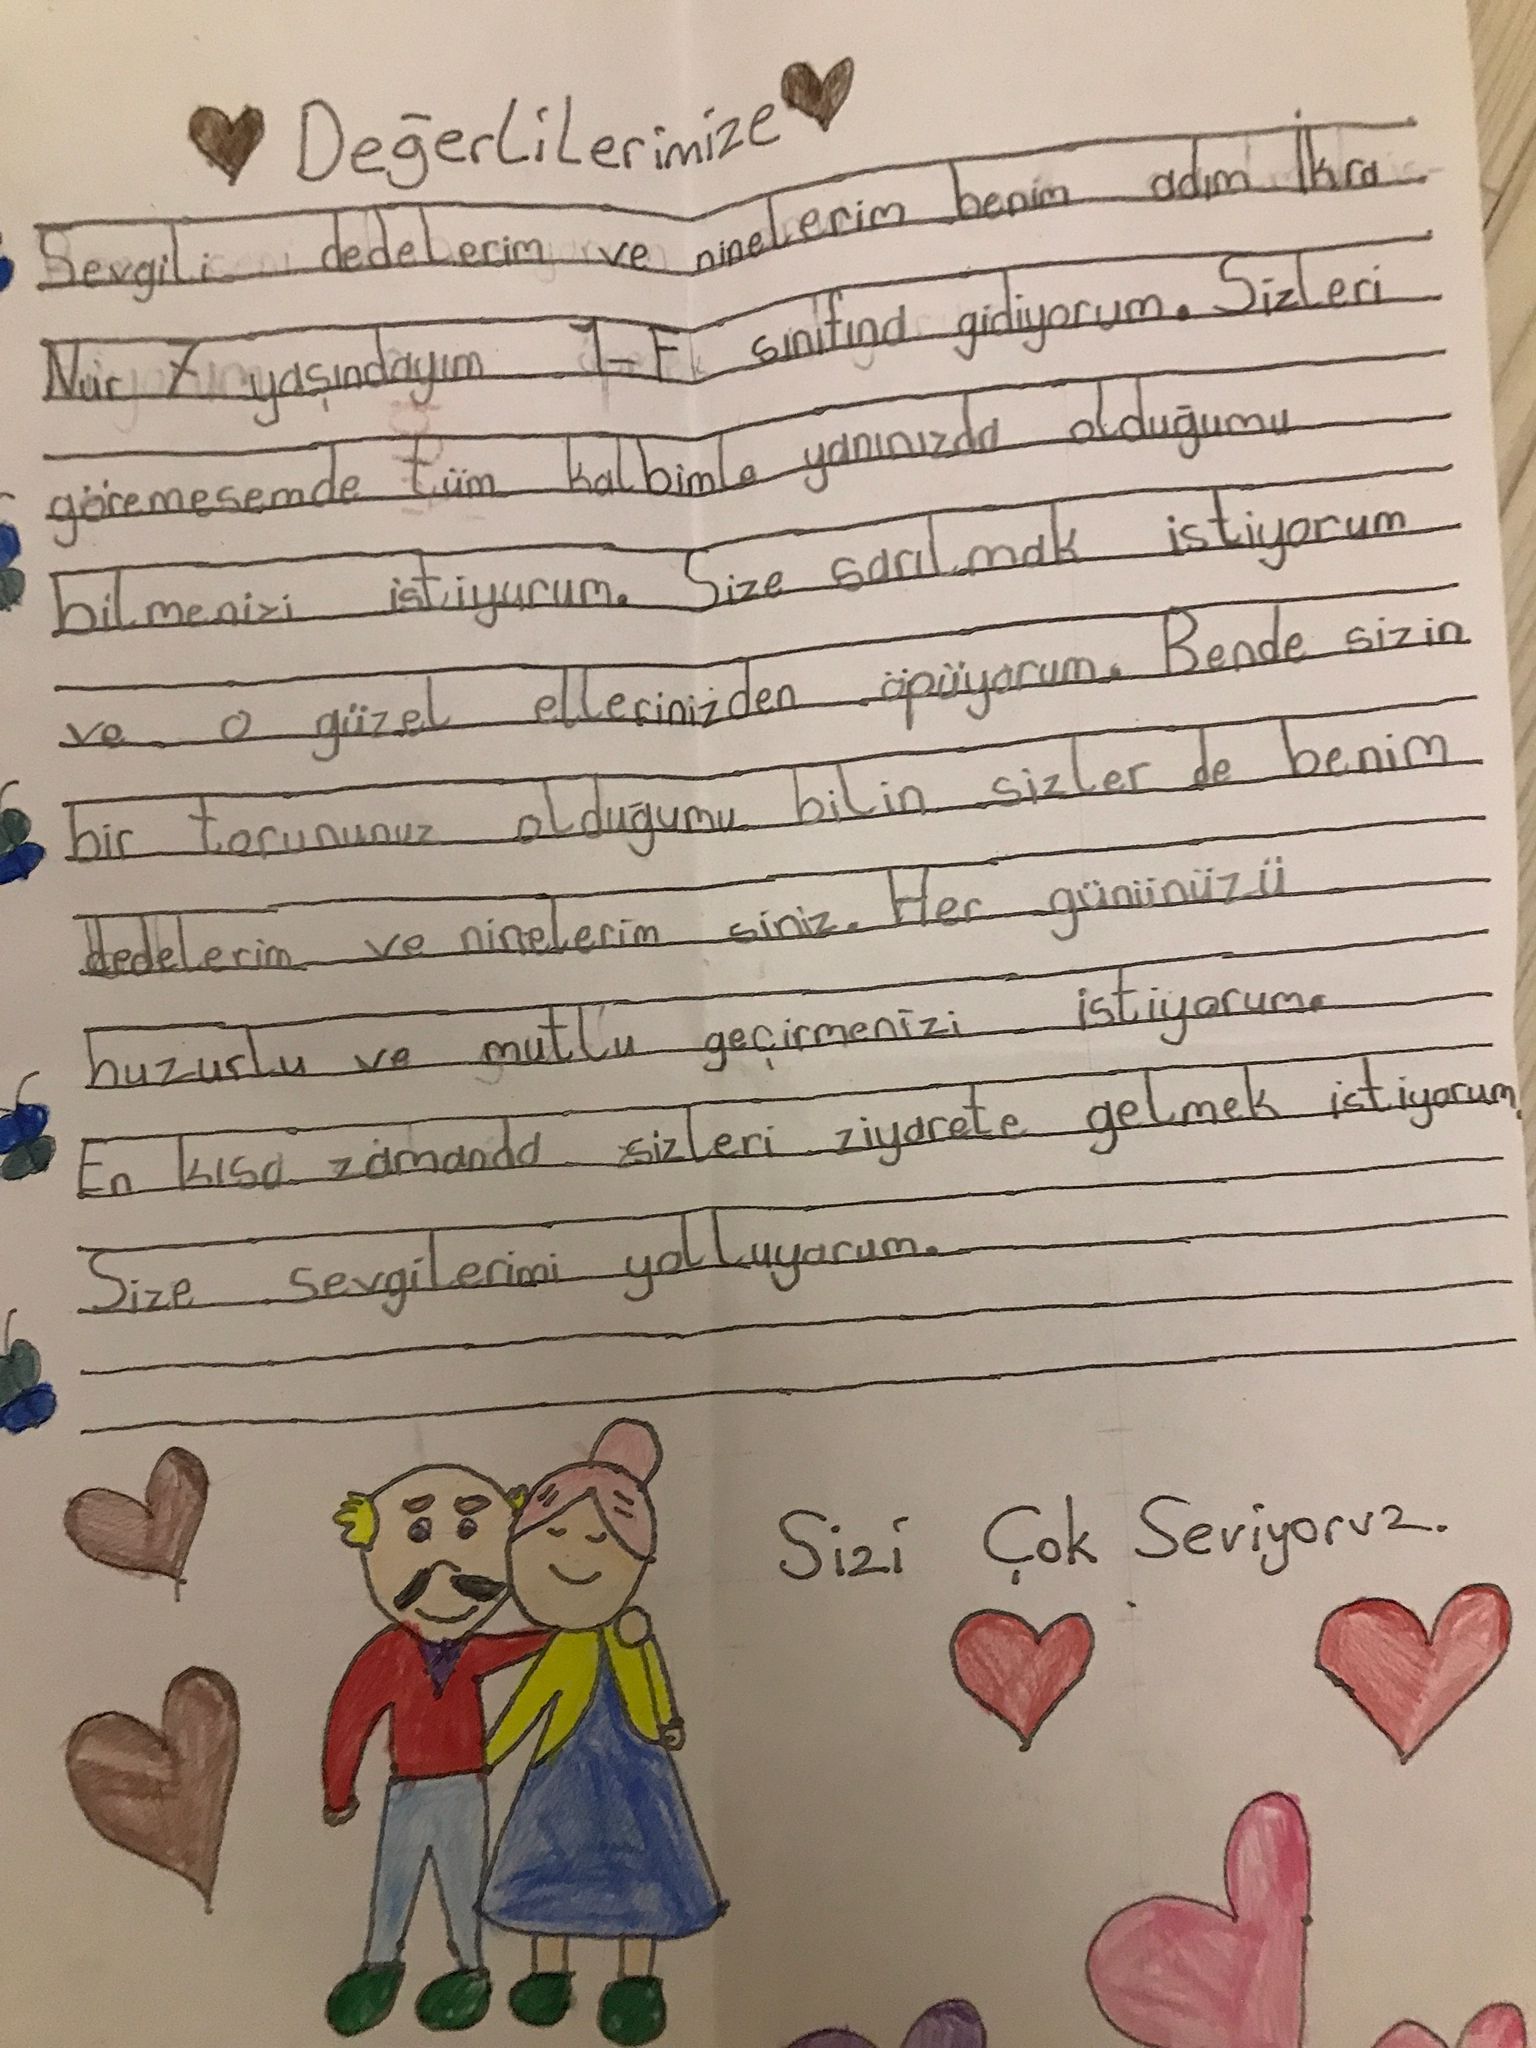 Değerlilerimize
Sevgili dedelerim ve ninelerim benim adım İkra
Nur 7 yaşındayım 1-F sınıfına gidiyorum. Sizleri
göremesemde tüm kalbimle yanınızda olduğumu
bilmenizi istiyurum. Size sarılmak istiyorum
ve o güzel ellerinizden öpüyorum. Bende sizin
bir torununuz olduğumu bilin sizler de benim
dedelerim ve ninelerim siniz. Her gününüzü
huzurlu ve mutlu geçirmenizi istiyorum.
En kısa zamanda sizleri ziyarete gelmek istiyorum.
Size sevgilerimi yolluyorum.
Sizi Çok Seviyoruz.